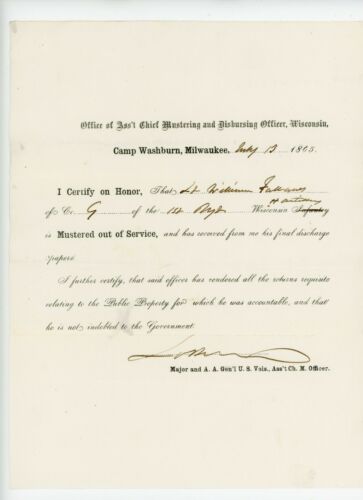 Office of Ass't Chief Mustering and Disbursing Officer, Wisconsin,
Camp Washburn, Milwaukee, July 13 1865.
I Certify on Honor, That Lt William
of Co. G of the 1st Regt Wisconsin Infantry
is Mustered out of Service, and has received from me his final discharge
papers
I further certify, that said officer has rendered all the returns requisite
relating to the Public Property for which he was accountable, and that
he is not indebted to the Government.
Major and A. A. Gen'l U. S. Vols., Ass't Ch. M. Officer.